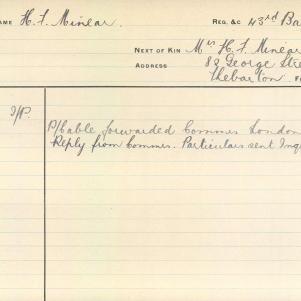 NAME H. F. Minear. REG. &C 43rd Ba
NEXT OF KIN Mrs H. F. Minear
ADDRESS 82 George Stre
Thebarton.
I/P.
P/Cable forwarded Commrs London
Reply from Commrs. Particulars sent Inq